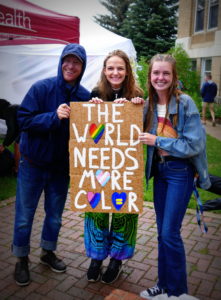 ealth
THE
WORLD
NEEDS
MORE
COLOR